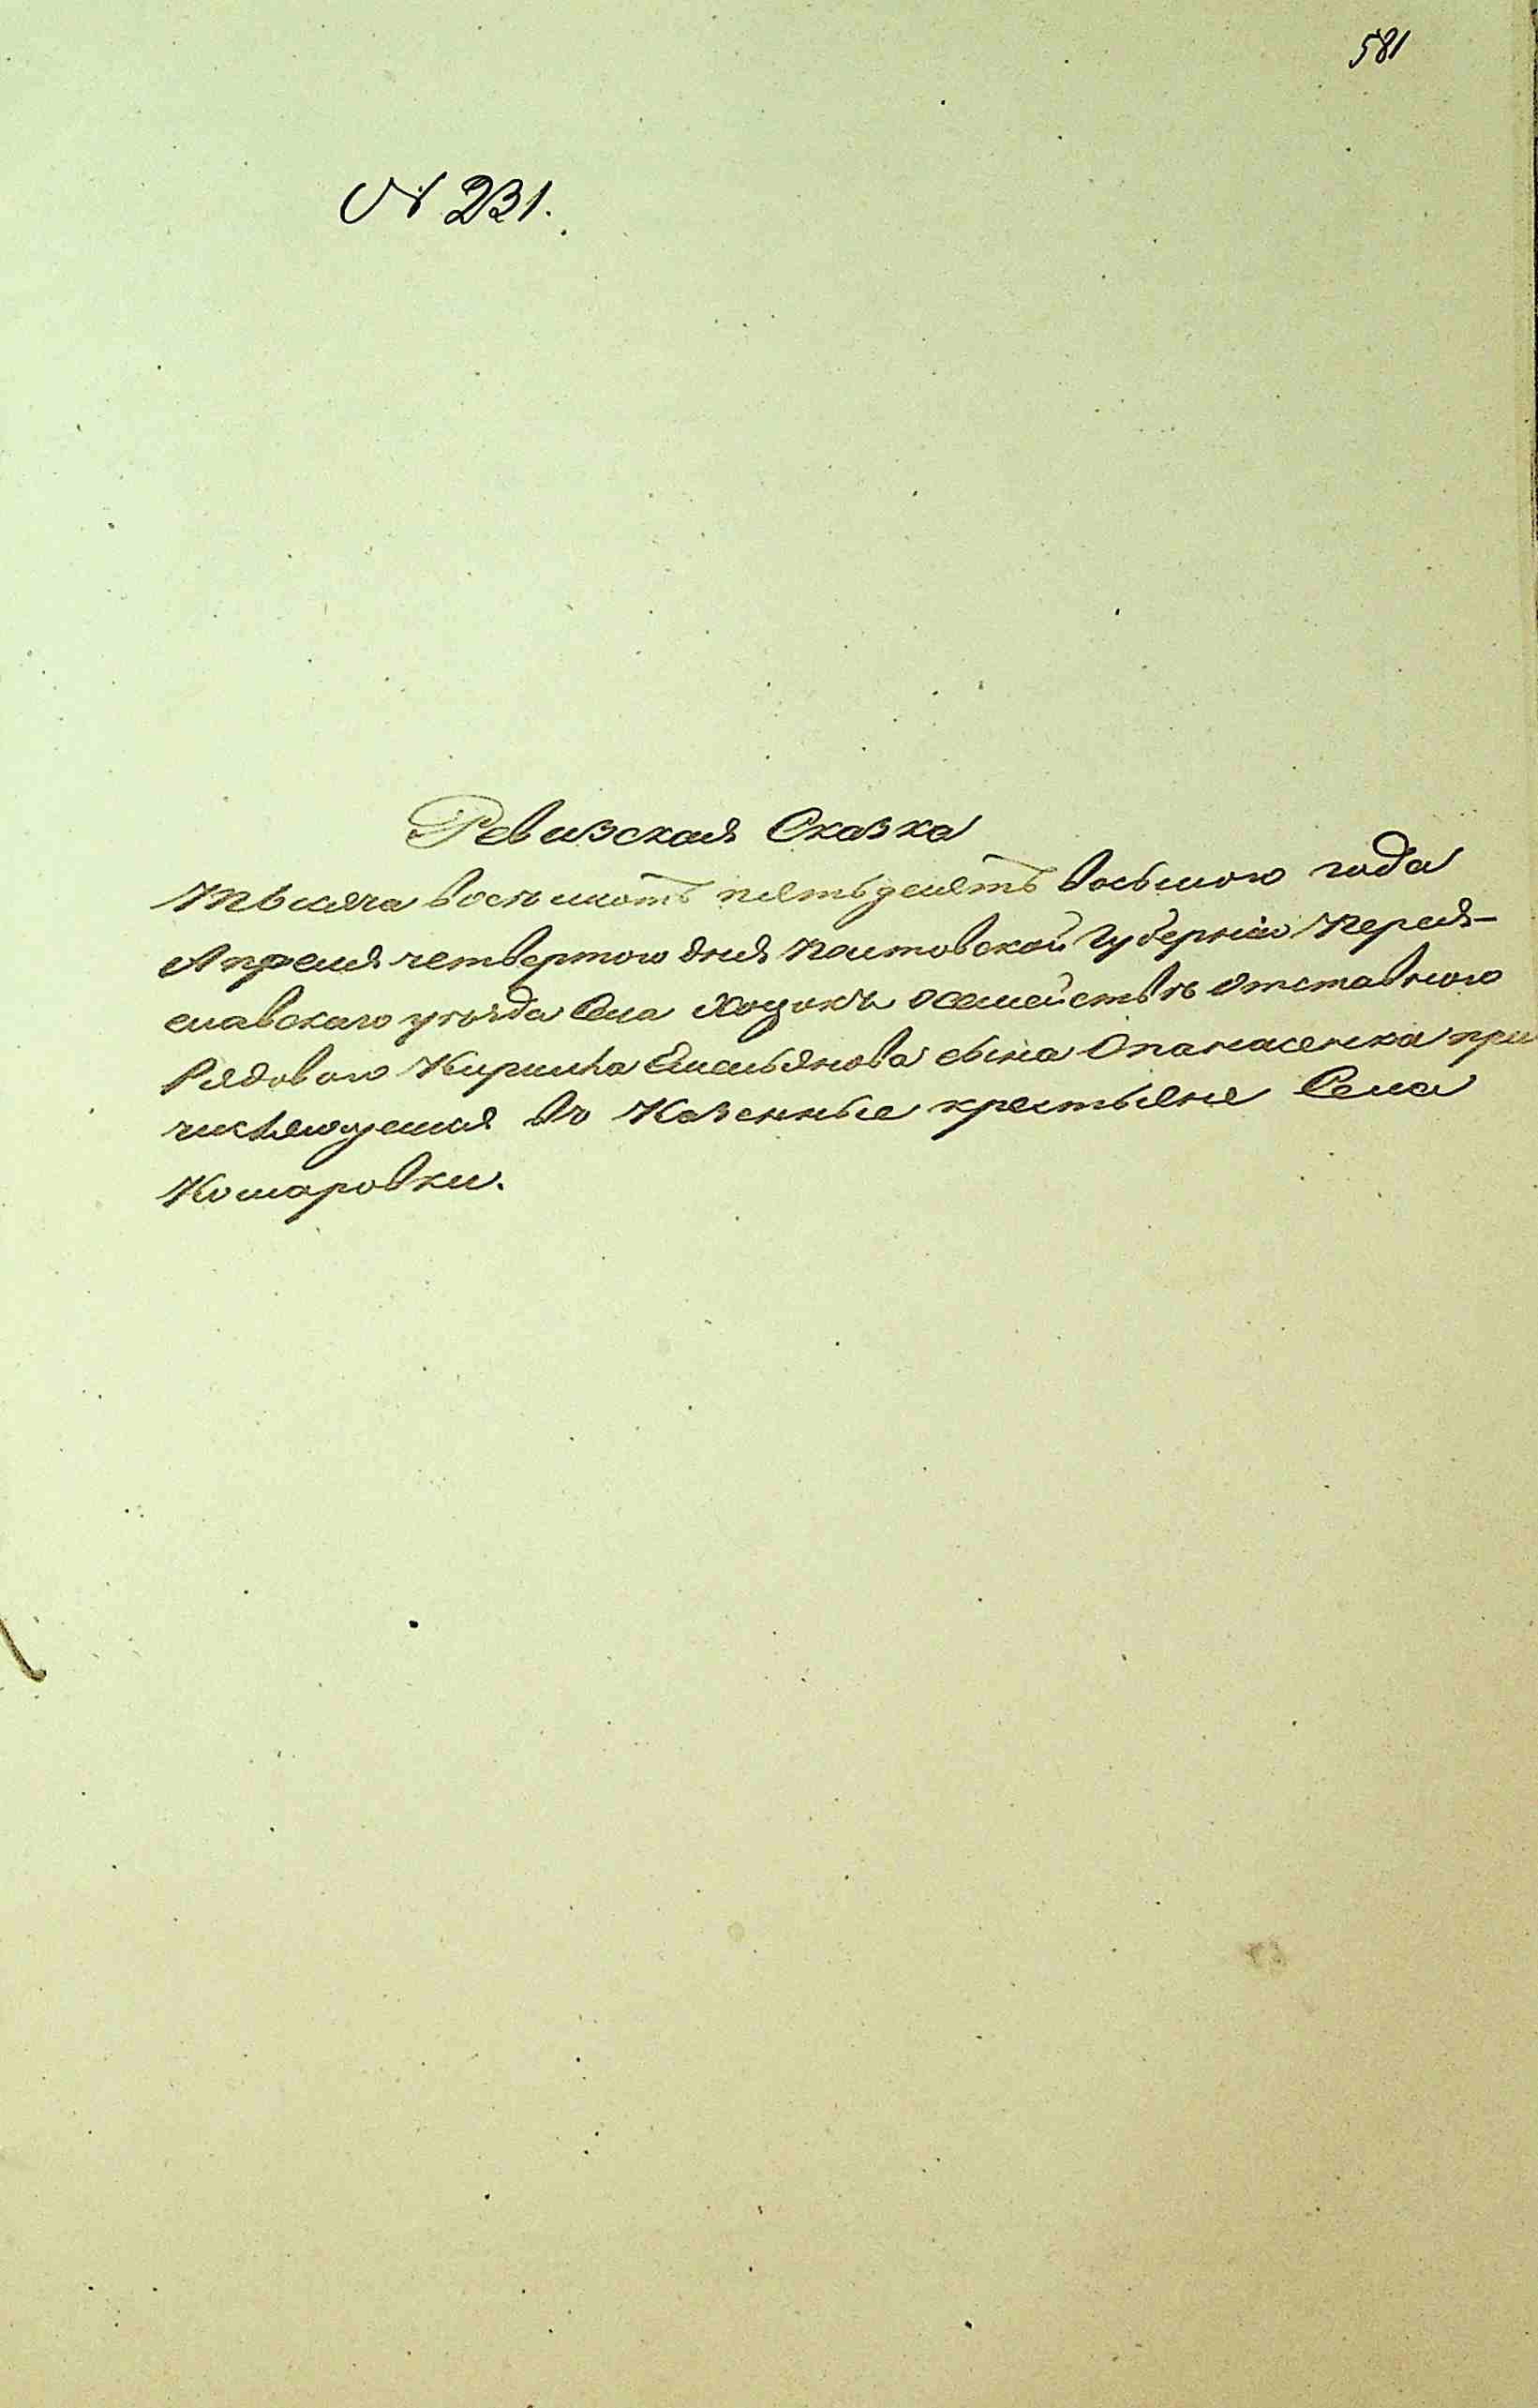 581
№ 231.
Ревизская Сказка
Тысяча восемьсотъ пятьдесятъ восьмого года
Апреля четвертого дня Полтовской Губерніи Перея-
славскаго уѣзда Села Хоцокъ о семействѣ отставного
Рядового Кирилла Емельянова сына Опанасенка при
числяющемся въ Казенные крестьяне Села
Комаровки.